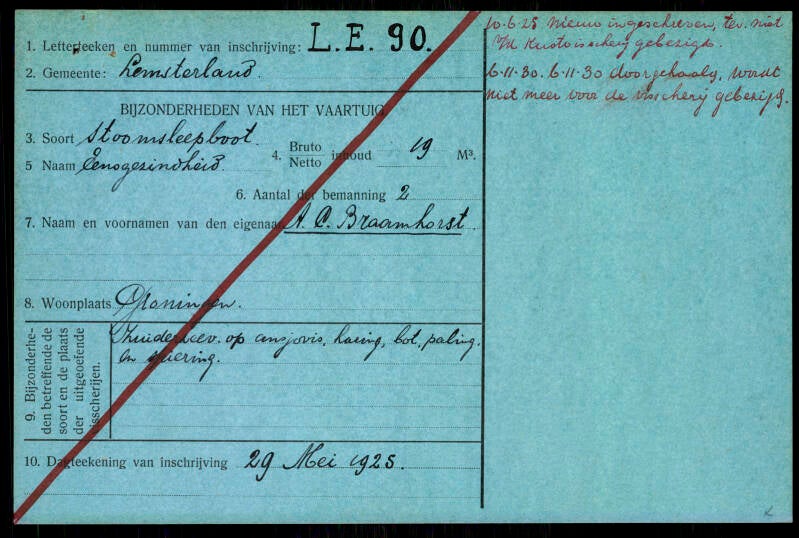 1. Letterteeken en nummer van inschrijving: L.E. 90.
2. Gemeente: Lemsterland.
BIJZONDERHEDEN VAN HET VAARTUIG
3. Soort Stoomsleepboot.
4. Bruto Netto inhoud 19 M³.
5 Naam Eensgezindheid.
6. Aantal der bemanning 2
7. Naam en voornamen van den eigenaar A. C. Braamhorst.
8. Woonplaats Groningen.
9. Bijzonderhe-
den betreffende de
soort en de plaats
der uitgeoefende
visscherijen.
Zuiderzeev. op ansjovis, haring, bot, paling.
en spiering.
10. Dagteekening van inschrijving 29 Mei 1925.
10-6-25 nieuw ingeschreven, tev. niet
gebezigd.
6-11-30. 6-11-30 doorgehaald, wordt
niet meer voor de visscherij gebezigd.